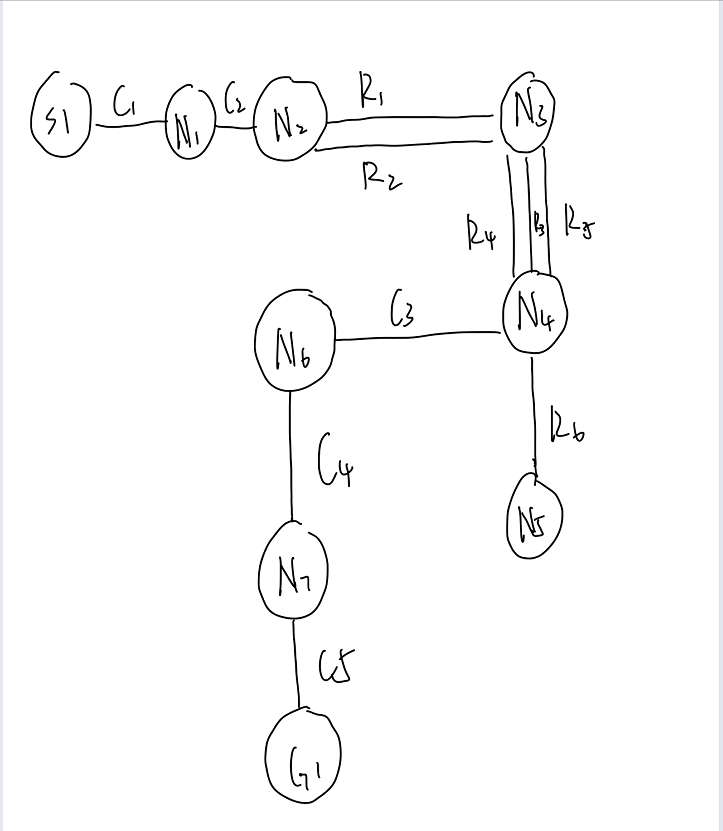 S1
C1
N1
C2
N2
R1
R2
N3
R4
R3
R5
N4
C3
N6
R6
C4
N5
N7
C5
G1